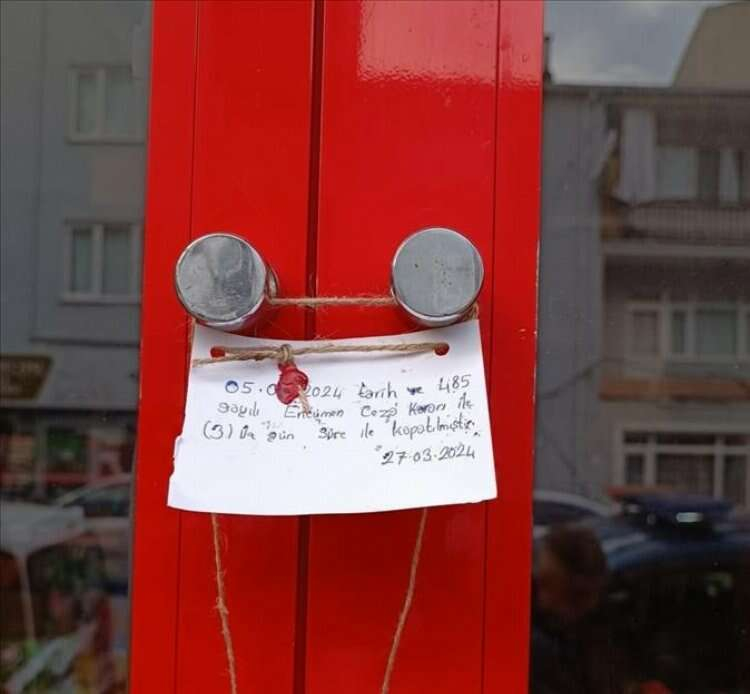 2024 tarih ve 485
sayılı Encümen Ceza Kararı ile
(3) gün süre ile kapatılmıştır.
27-03-2024